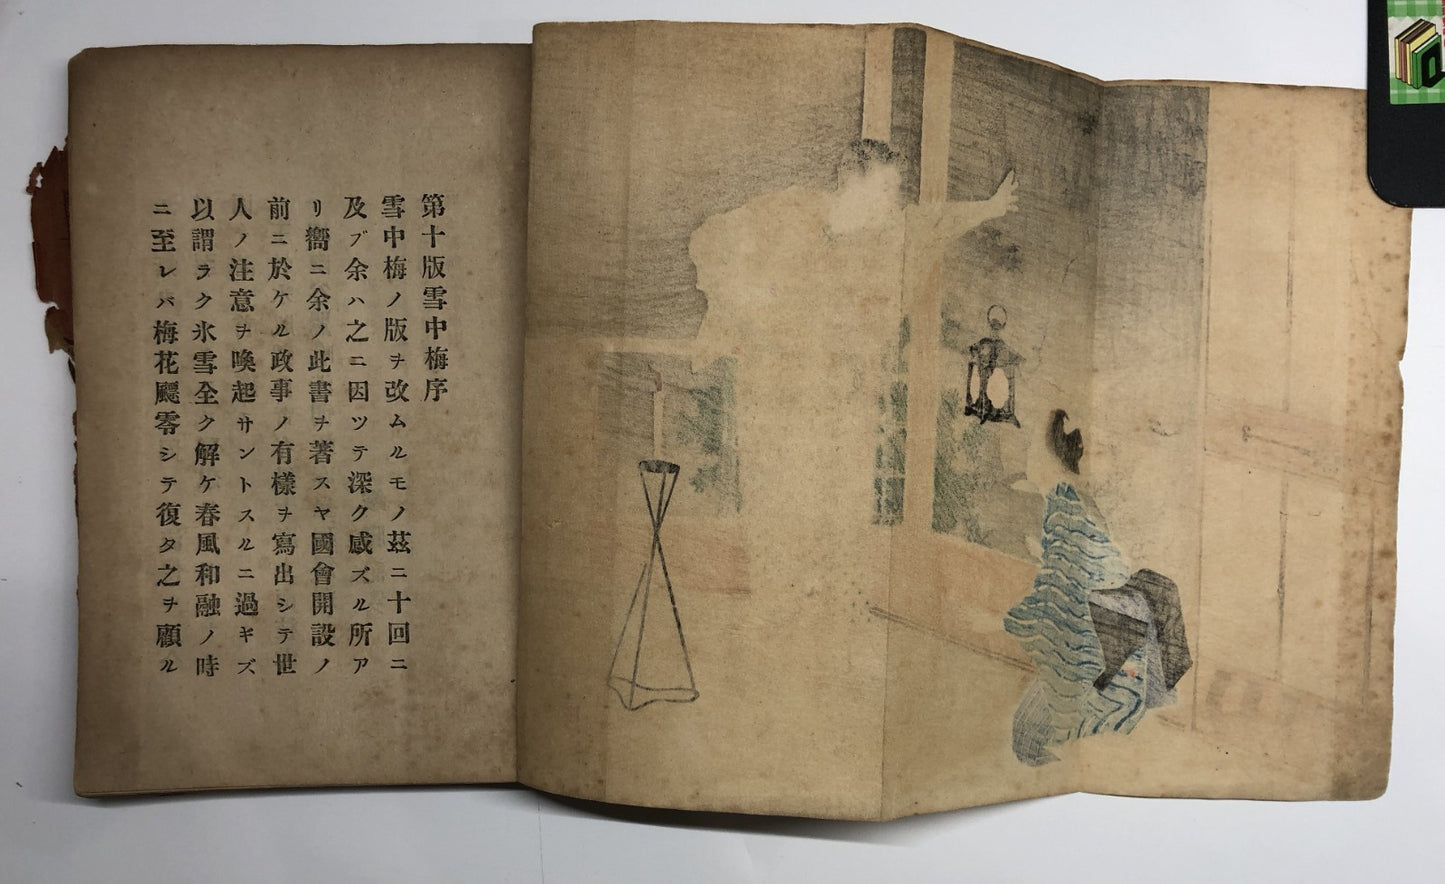 第十版雪中梅序
雪中梅ノ版ヲ改ムルモノ茲ニ十回ニ
及ブ余ハ之ニ因ツテ深ク感ズル所ア
リ嚮ニ余ノ此書ヲ著スヤ國會開設ノ
前ニ於ケル政事ノ有樣ヲ寫出シテ世
人ノ注意ヲ喚起サントスルニ過ギズ
以謂ラク氷雪全ク解ケ春風和融ノ時
ニ至レバ梅花飄零シテ復タ之ヲ顧ル